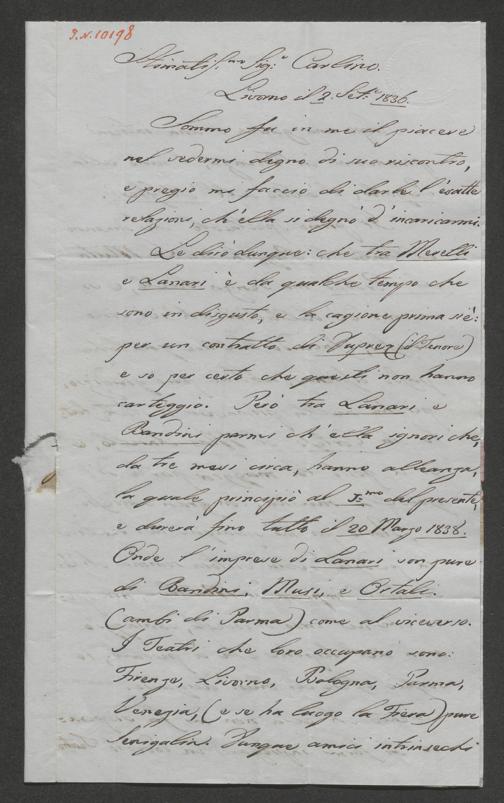 J.N.10198
Stimatis.mo Sig.r Carlino.
Livorno il 2. Set.e 1836.
Sommo fu in me il piacere
nel vedermi degno di suo riscontro,
e pregio mi faccio di darle l'esatte
relazioni, ch'ella si degnò d'incaricarmi.
Le dirò dunque: che tra Merelli
e Lanari è da qualche tempo che
sono in disgusto, e la cagione prima si è:
per un contratto di Duprez (il Tenore)
e so per certo che questi non hanno
carteggio. Però tra Lanari e
Bandini parmi ch'ella ignori che,
da tre mesi circa, hanno alleanza,
la quale principiò al I.mo del presente,
e durerà fino tutto il 20 Marzo 1838.
Onde l'imprese di Lanari son pure
di Bandini, Musi, e Ortali.
(ambi di Parma) come al viceverso.
I Teatri che loro occupano sono:
Firenze, Livorno, Bologna, Parma,
Venezia, (e se ha luogo la Fiera) pure
Senigalia. Dunque amici intrinsechi